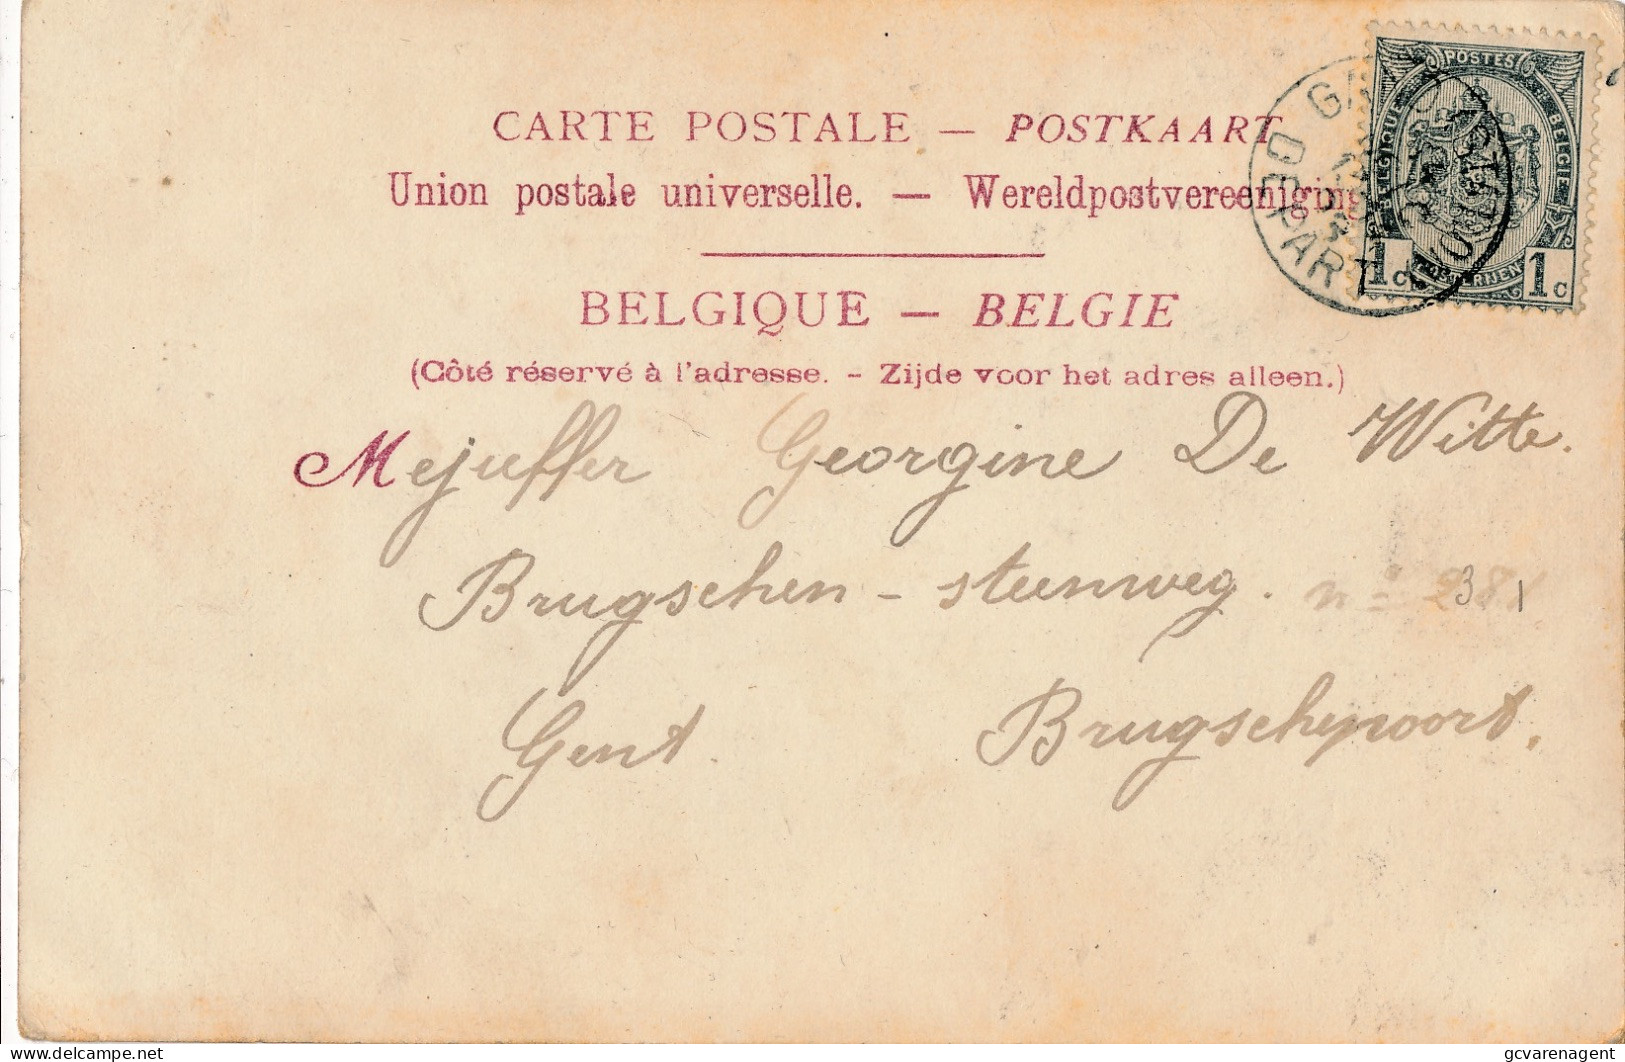 CARTE POSTALE — POSTKAART
Union postale universelle. — Wereldpostvereeniging
BELGIQUE — BELGIE
(Côté réservé à l'adresse. - Zijde voor het adres alleen.)
Mejuffer Georgine De Witte.
Brugschen - steenweg. n°
Gent. Brugschepoort.
POSTES
BELGIQUE
BELGIE
1c
1c
DEPART
delcampe.net
gcvarenagent